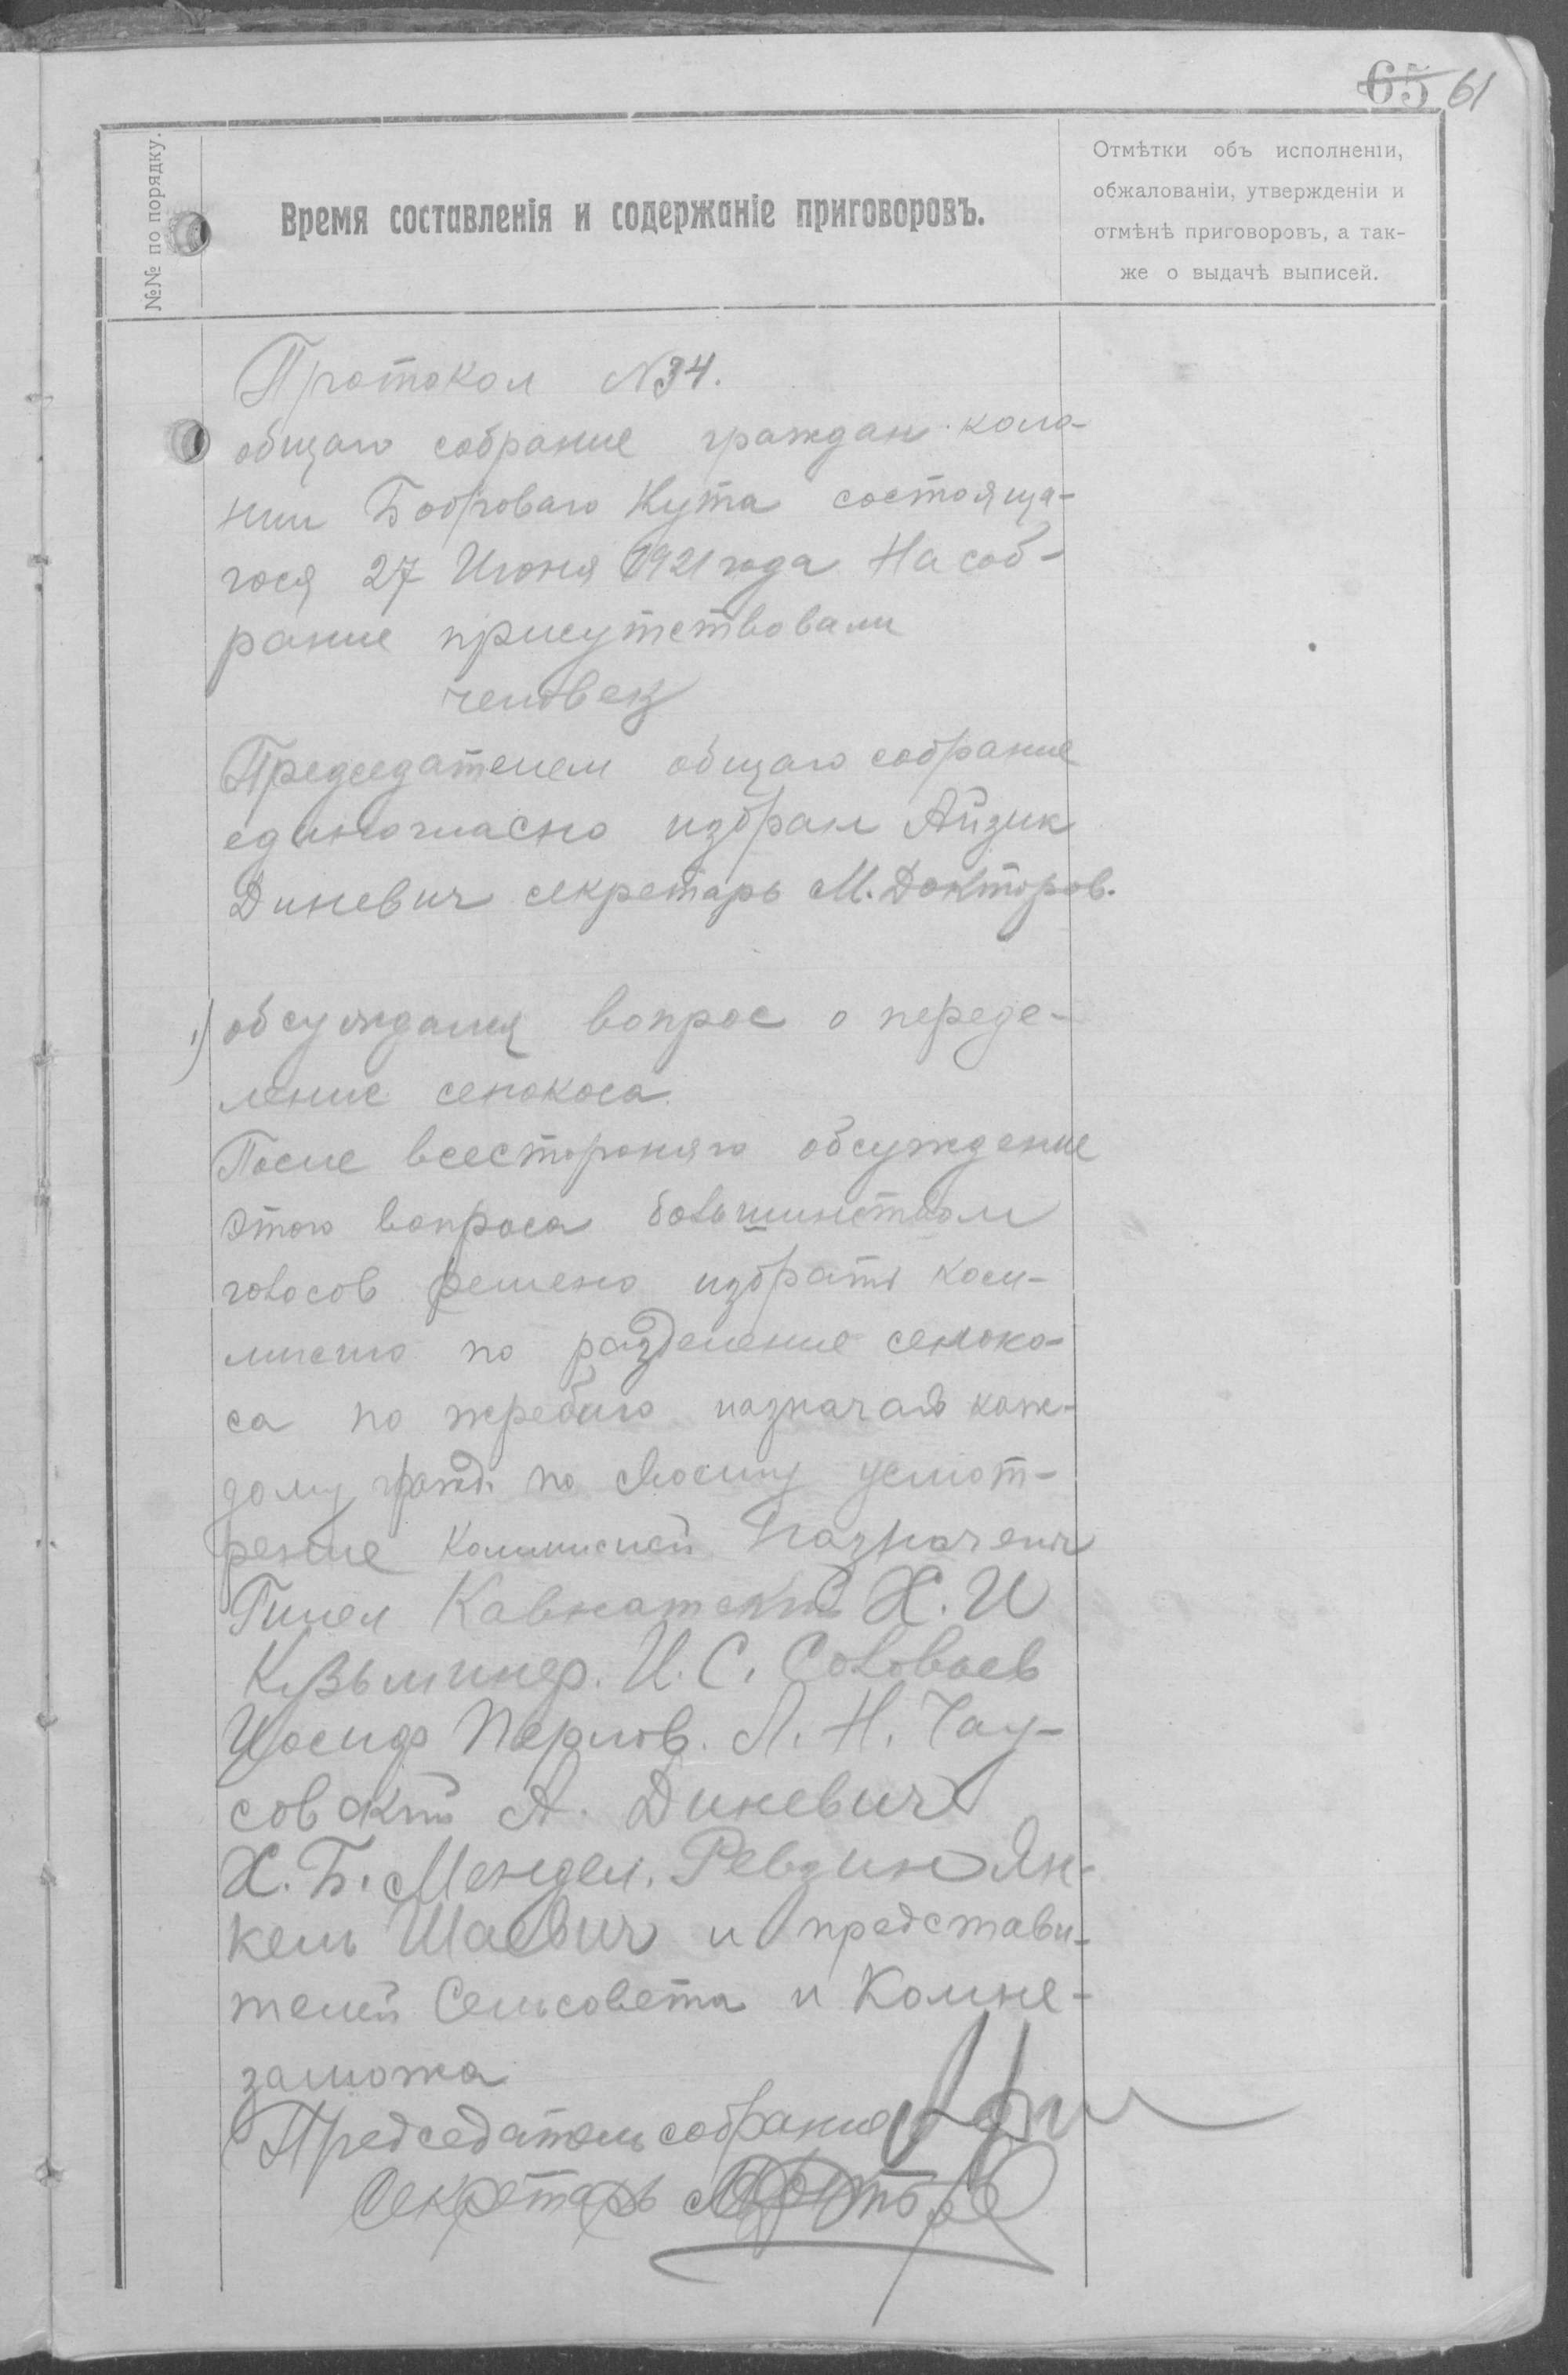 65 61
№№ по порядку.
Время составленія и содержаніе приговоровъ.
Отмѣтки объ исполненіи,
обжалованіи, утвержденіи и
отмѣнѣ приговоровъ, а так-
же о выдачѣ выписей.
Протокол N34.
общаго собрание граждан коло-
нии Боброваго Кута состояща-
гося 27 Июня 1921 года На соб-
рание присутствовали
человек
Председателем общаго собрание
единогласно избран Айзик
Диневич секретарь М. Докторов.
1) обсуждался вопрос о переде-
ление сенокоса.
После всестороняго обсуждение
этого вопроса большинством
голосов решено избрать коми-
мисию по разделение сеноко-
са по жребию назначая каж-
дому гражд. по своему усмот-
рение Коммисией Назначени
Гилел Кавнатский Х. И
Кузьминер. И. С. Соловьев
Иосиф Перлов. Л. Н. Чау-
совский А. Диневич
Х. Б. Мендел. Ревзин Ян-
кель Шаевич и представи-
телей Сельсовета и Комне-
заможа
Председатель собрание
Секретарь